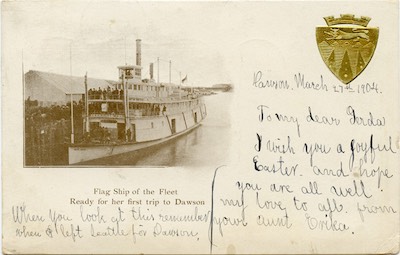 Dawson. March 27th 1904.
To my dear
I wish you a joyful
Easter. and hope
you are all well
my love to all. from
your aunt Erika.
Flag Ship of the Fleet
Ready for her first trip to Dawson
When you look at this remember
when I left Seattle for Dawson,